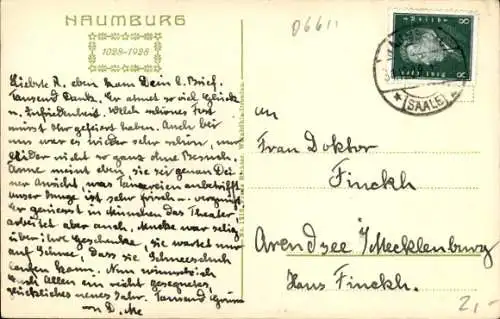 NAUMBURG
1028-1928
06611
8 8
(SAALE)
Liebste R. eben kam Dein l. Brief.
Tausend Dank. Er atmet so viel Glück
u. Zufriedenheit. Welch schönes Fest
müsst Ihr gefeiert haben. Auch bei
uns war es wieder sehr schön, nur
leider nicht so ganz ohne Besuch.
Anne meint eben, sie sei genau Dei-
ner Ansicht, was anbetrifft
unser Junge ist sehr frisch - vergnügt
Er geniesst in München das Theater,
arbeitet aber auch. war selig
über ihre Geschenke, sie wartet nur
auf, dass sie Schneeschuh
laufen kann. Nun
Euch Allen ein recht gesegnetes,
glückliches neues Jahr. Tausend Grüsse
An
Frau Doktor
Finckh
Arendsee i/Mecklenburg
Haus Finckh.
2,-